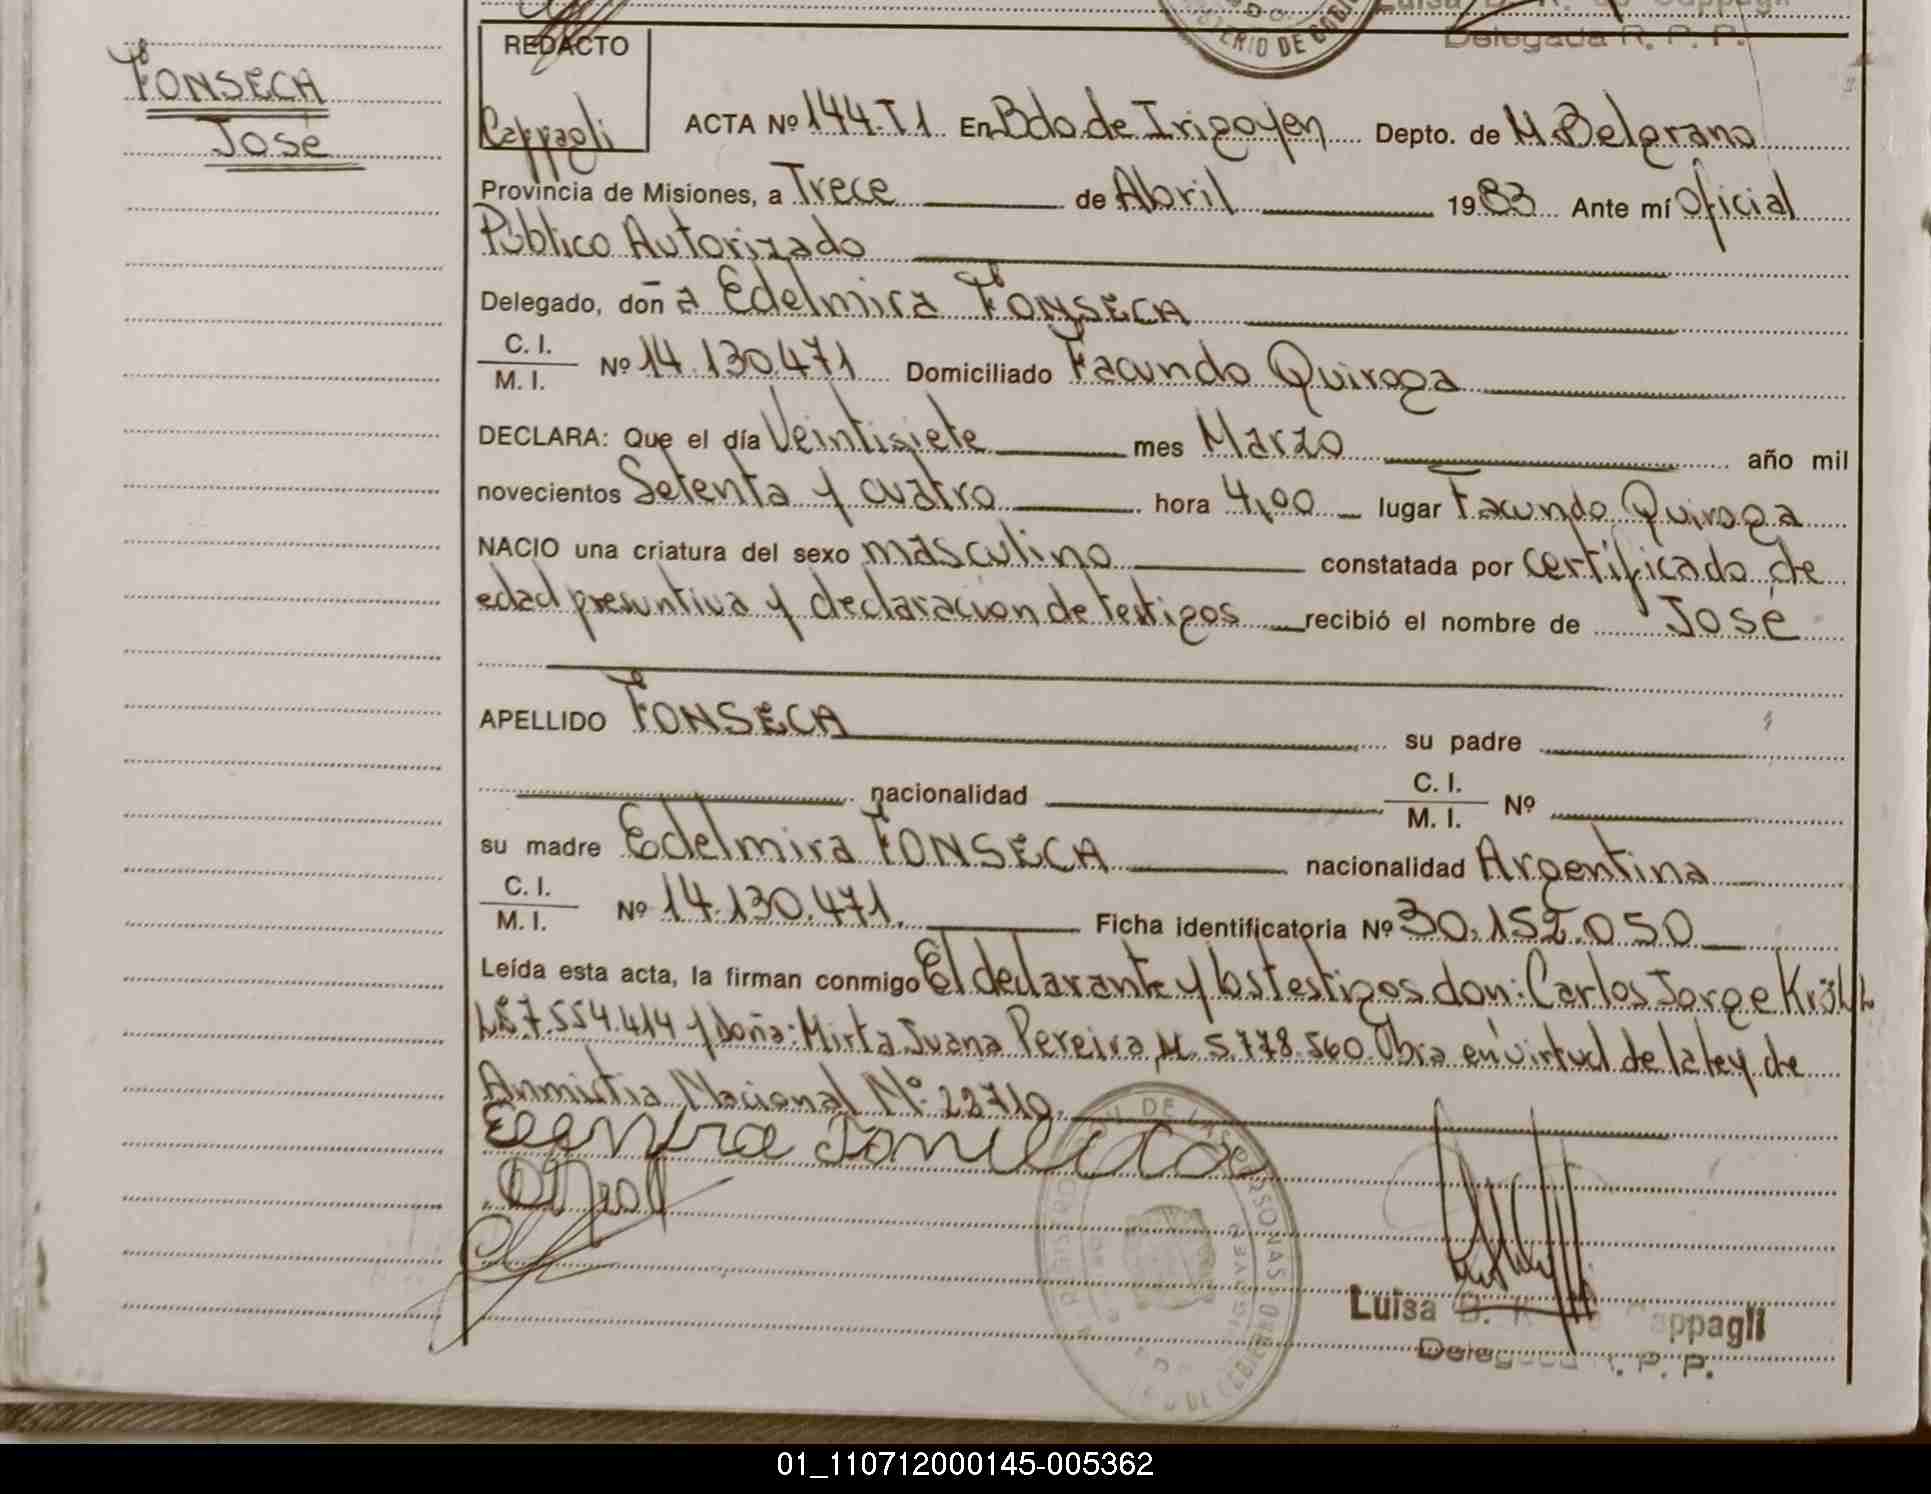 FONSECA
José
REDACTO
Cappagli
ACTA Nº 144.T1 En Bdo de Irigoyen Depto. de M. Belgrano
Provincia de Misiones, a Trece de Abril 1983 Ante mí Oficial
Público Autorizado
Delegado, doña Edelmira FONSECA
C. I. / M. I. Nº 14.130.471 Domiciliado Facundo Quiroga
DECLARA: Que el día Veintisiete mes Marzo año mil
novecientos Setenta y cuatro hora 4,00 lugar Facundo Quiroga
NACIO una criatura del sexo masculino constatada por certificado de
edad presuntiva y declaración de testigos recibió el nombre de José
APELLIDO FONSECA su padre
nacionalidad C. I. / M. I. Nº
su madre Edelmira FONSECA nacionalidad Argentina
C. I. / M. I. Nº 14.130.471. Ficha identificatoria Nº 30.152.050
Leída esta acta, la firman conmigo El declarante y los testigos don: Carlos Jorge
LE 7.554.414 y Doña: Mirta Juana Pereira, M. 5.778.560. Obra en virtud de la ley de
Anmistia Nacional Nº 22710.
Luisa Cappagli
Delegada R. P. P.
01_110712000145-005362